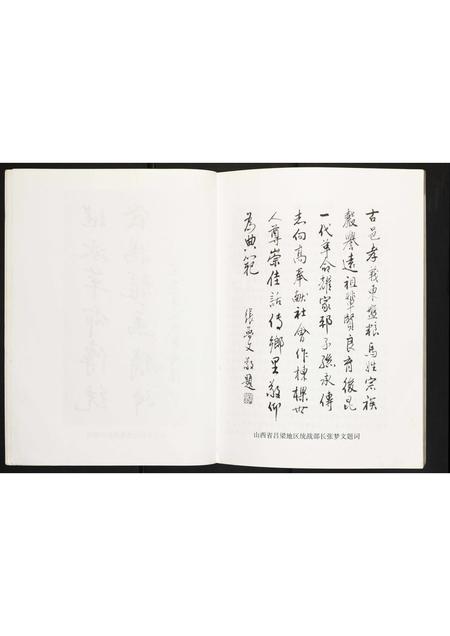 古邑孝義東盤粮馬姓宗族
声譽遠祖輩賢良育後昆
一代革命雄家邦子孫承傳
志向高奉献社會作棟樑世
人尊崇佳話傳鄉里敬仰
為典範
張夢文敬題
山西省吕梁地区统战部长张梦文题词